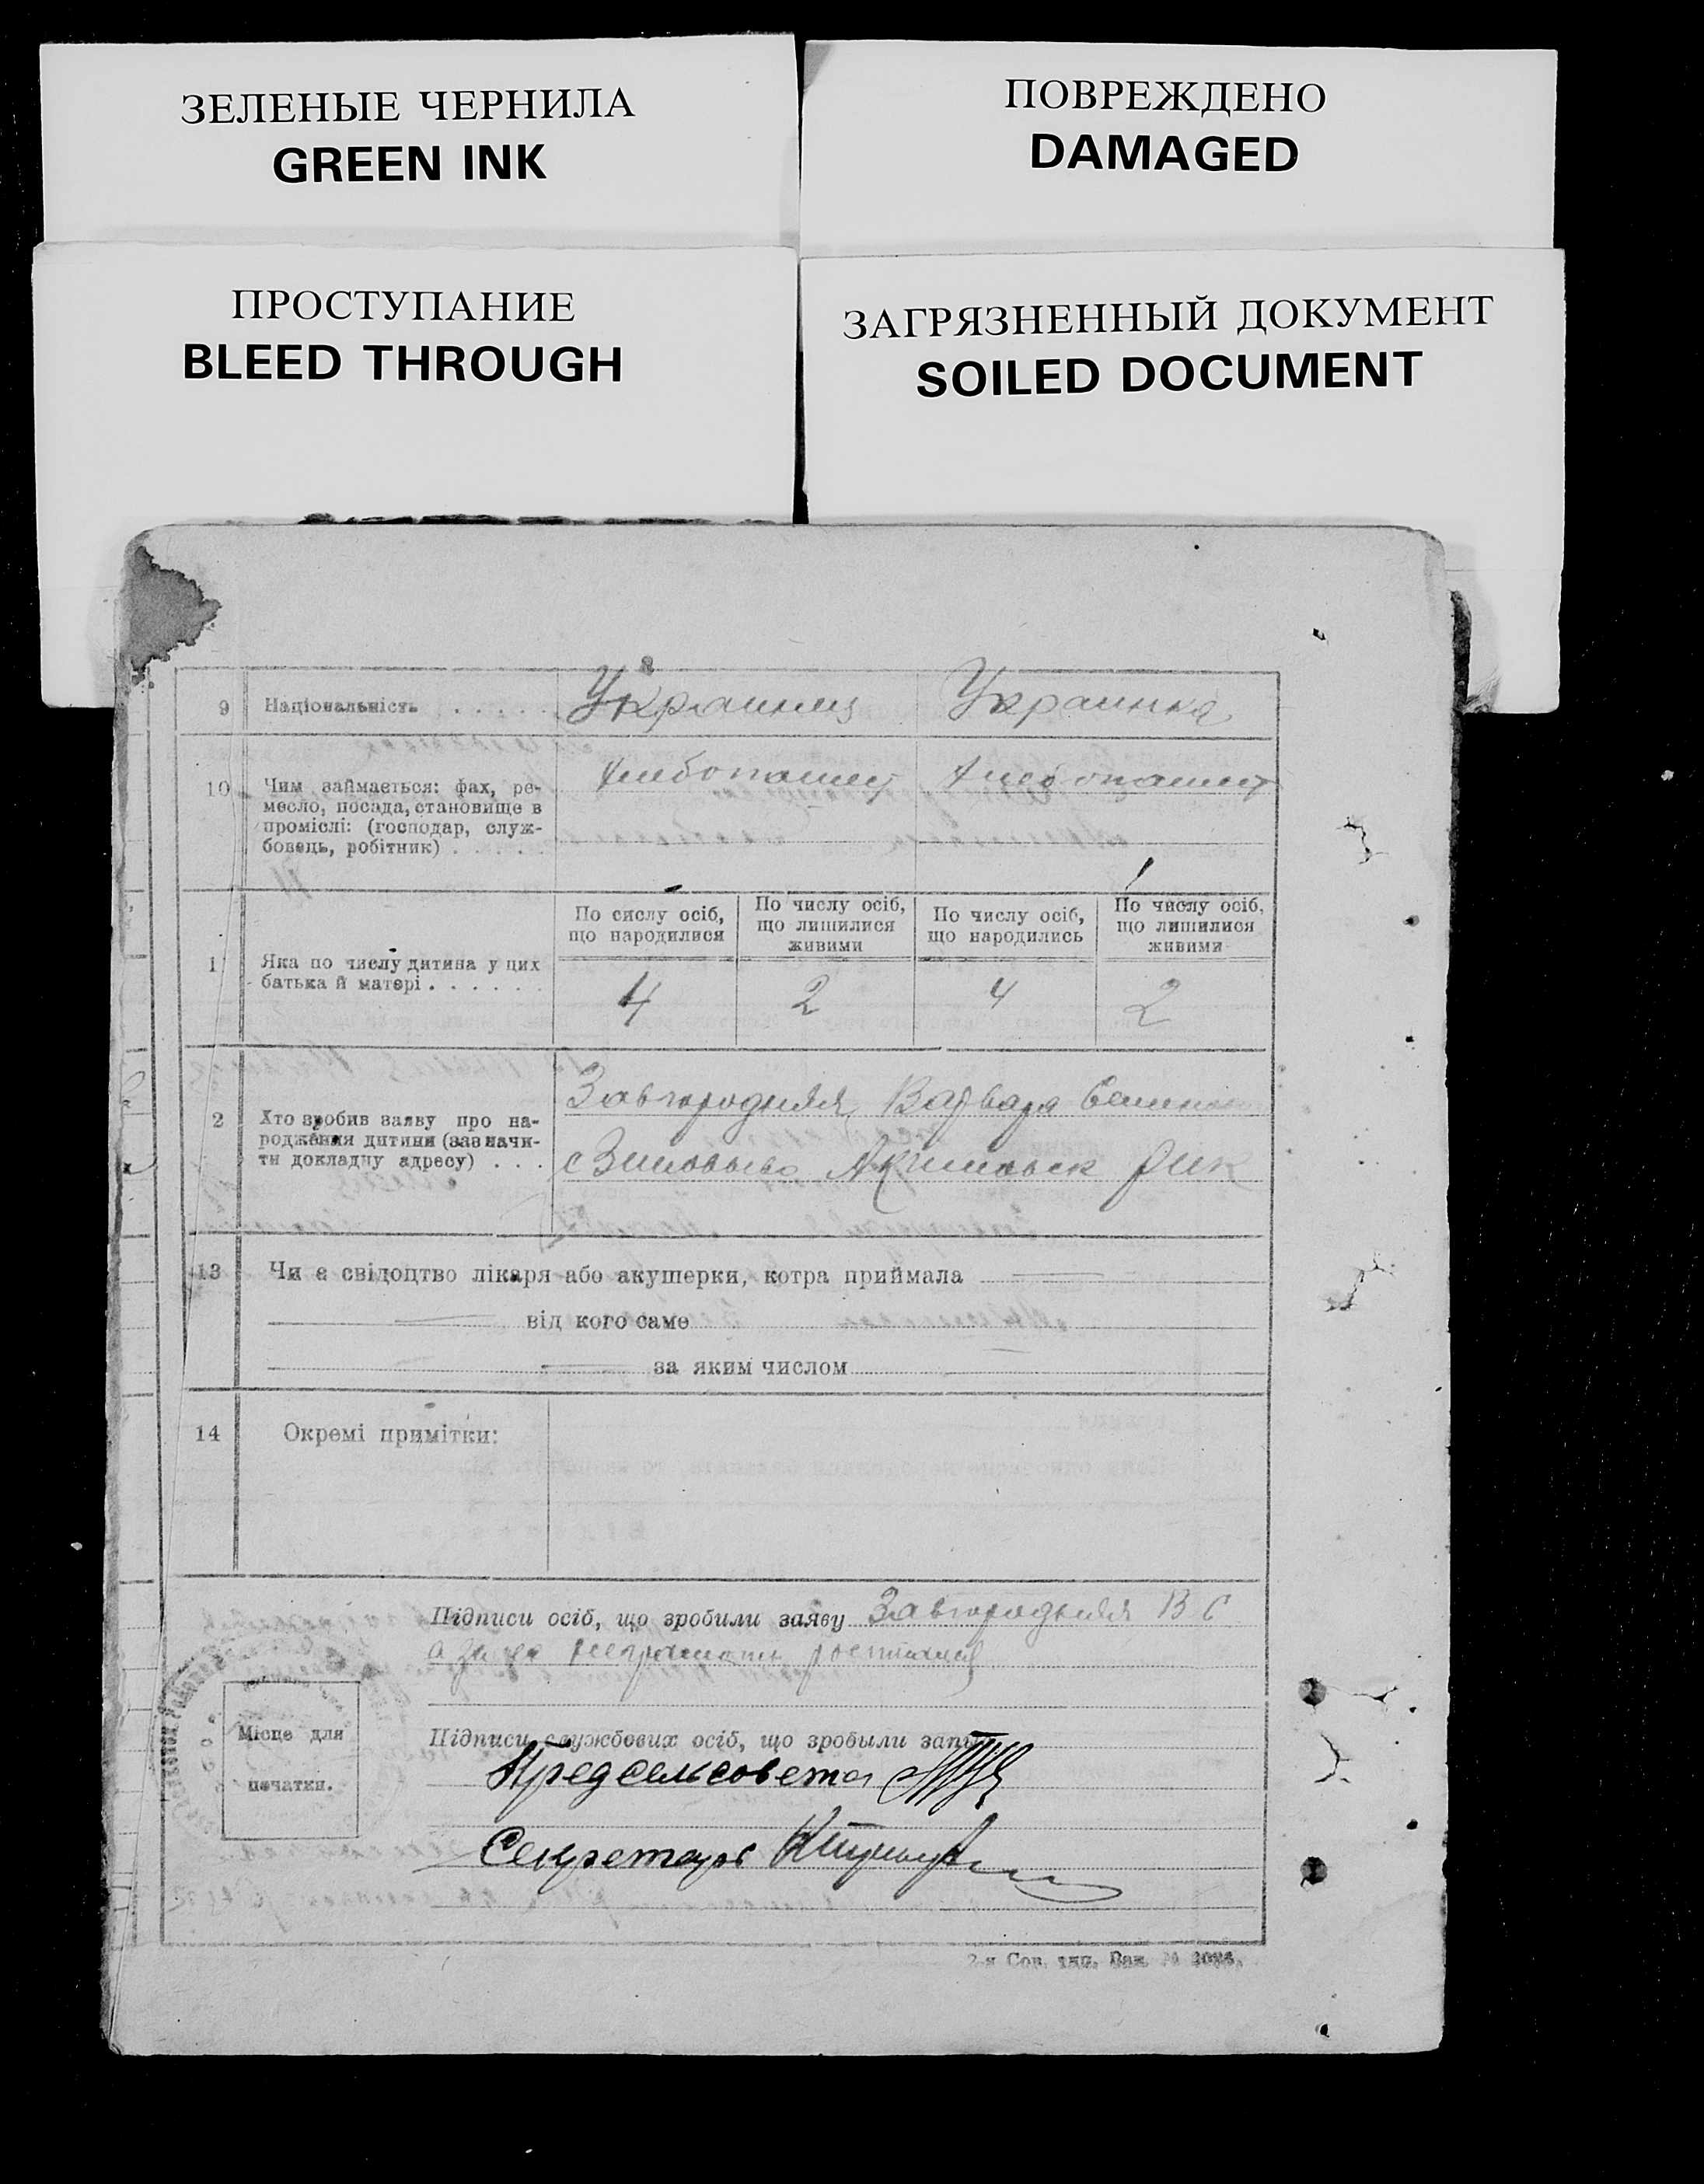 ЗЕЛЕНЫЕ ЧЕРНИЛА
GREEN INK
ПОВРЕЖДЕНО
DAMAGED
ПРОСТУПАНИЕ
BLEED THROUGH
ЗАГРЯЗНЕННЫЙ ДОКУМЕНТ
SOILED DOCUMENT
9 Національність . . . . . Украинец Украинка
10 Чим займається: фах, ре-
месло, посада, становище в
проміслі: (господар, служ-
бовець, робітник) . . . . .
Хлебопашец Хлебопашец
1 Яка по числу дитина у цих
батька й матері . . . . . .
По сислу осіб,
що народилися
По числу осіб,
що лишилися
живими
По числу осіб,
що народились
По числу осіб,
що лишилися
живими
4 2 4 2
2 Хто зробив заяву про на-
родження дитини (зазначи-
ти докладну адресу) . . .
Завгородняя Варвара
РИК
13 Чи є свідоцтво лікаря або акушерки, котра приймала
від кого саме
за яким числом
14 Окремі примітки:
Підписи осіб, що зробили заяву Завгородняя В С
Місце для
печатки.
Підписи службових осіб, що зробыли запис
Предсельсовета
Секретарь
2-я Сов. тип. Зак. №